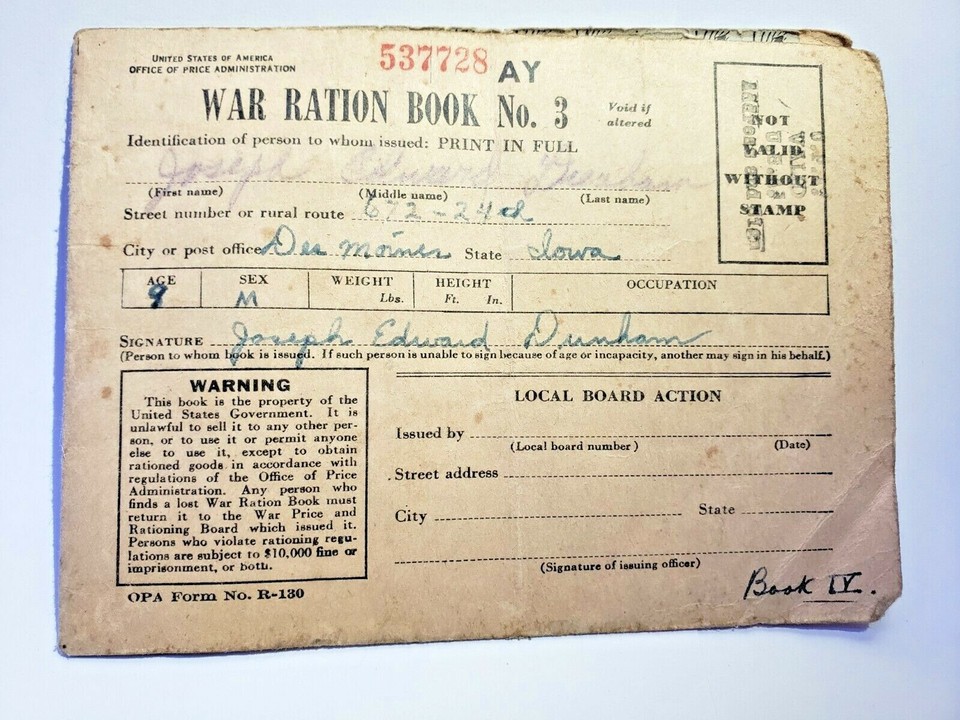 UNITED STATES OF AMERICA
OFFICE OF PRICE ADMINISTRATION
537728 AY
WAR RATION BOOK No. 3
Void if
altered
Identification of person to whom issued: PRINT IN FULL
Joseph Edward Dunham
(First name) (Middle name) (Last name)
Street number or rural route 672-24th
City or post office Des Moines State Iowa
AGE SEX WEIGHT HEIGHT OCCUPATION
9 M Lbs. Ft. In.
SIGNATURE Joseph Edward Dunham
(Person to whom book is issued. If such person is unable to sign because of age or incapacity, another may sign in his behalf.)
NOT
VALID
WITHOUT
STAMP
WARNING
This book is the property of the
United States Government. It is
unlawful to sell it to any other per-
son, or to use it or permit anyone
else to use it, except to obtain
rationed goods in accordance with
regulations of the Office of Price
Administration. Any person who
finds a lost War Ration Book must
return it to the War Price and
Rationing Board which issued it.
Persons who violate rationing regu-
lations are subject to $10,000 fine or
imprisonment, or both.
OPA Form No. R-130
LOCAL BOARD ACTION
Issued by
(Local board number) (Date)
Street address
City State
(Signature of issuing officer)
Book IV.